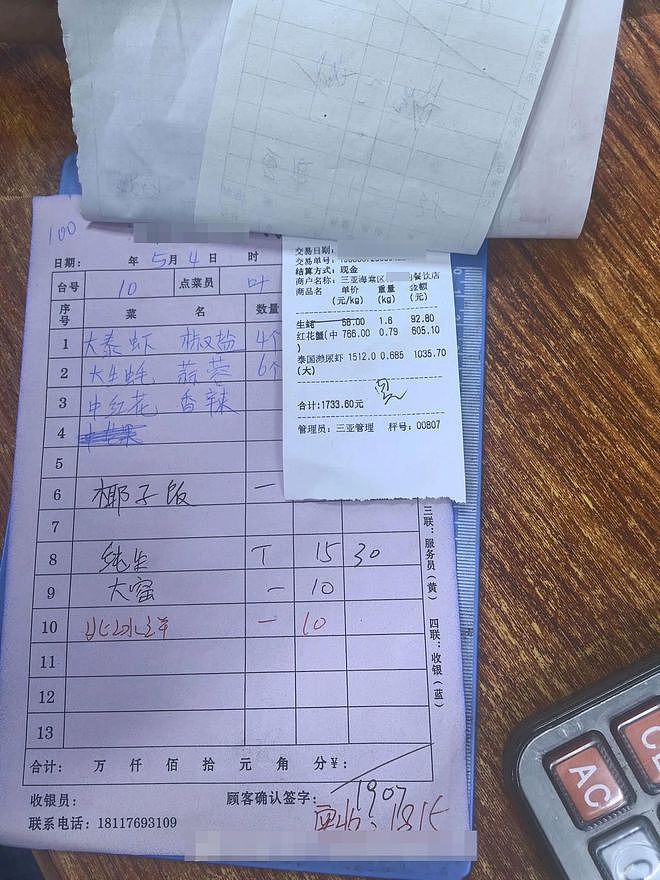 100
日期： 年 5 月 4 日 时
台号 10 点菜员 叶
序号 菜 名 数量
1 大泰虾 椒盐 4个
2 大生蚝 蒜蓉 6个
3 中红花 香辣
4
5
6 椰子饭 一
7
8 纯生 T 15 30
9 大窑 一 10
10 北冰洋 一 10
11
12
13
合计： 万 仟 佰 拾 元 角 分¥：
收银员： 顾客确认签字：
1907
联系电话：18117693109
实收：1815
三联：服务员（黄） 四联：收银（蓝）
交易日期：
交易单号：
结算方式：现金
商户名称：三亚海棠区 餐饮店
商品名 单价 重量 金额
(元/kg) (kg) (元)
生蚝 58.00 1.6 92.80
红花蟹(中 766.00 0.79 605.10
)
泰国濑尿虾 1512.0 0.685 1035.70
(大)
合计:1733.60元
管理员：三亚管理 秤号：00807
AC